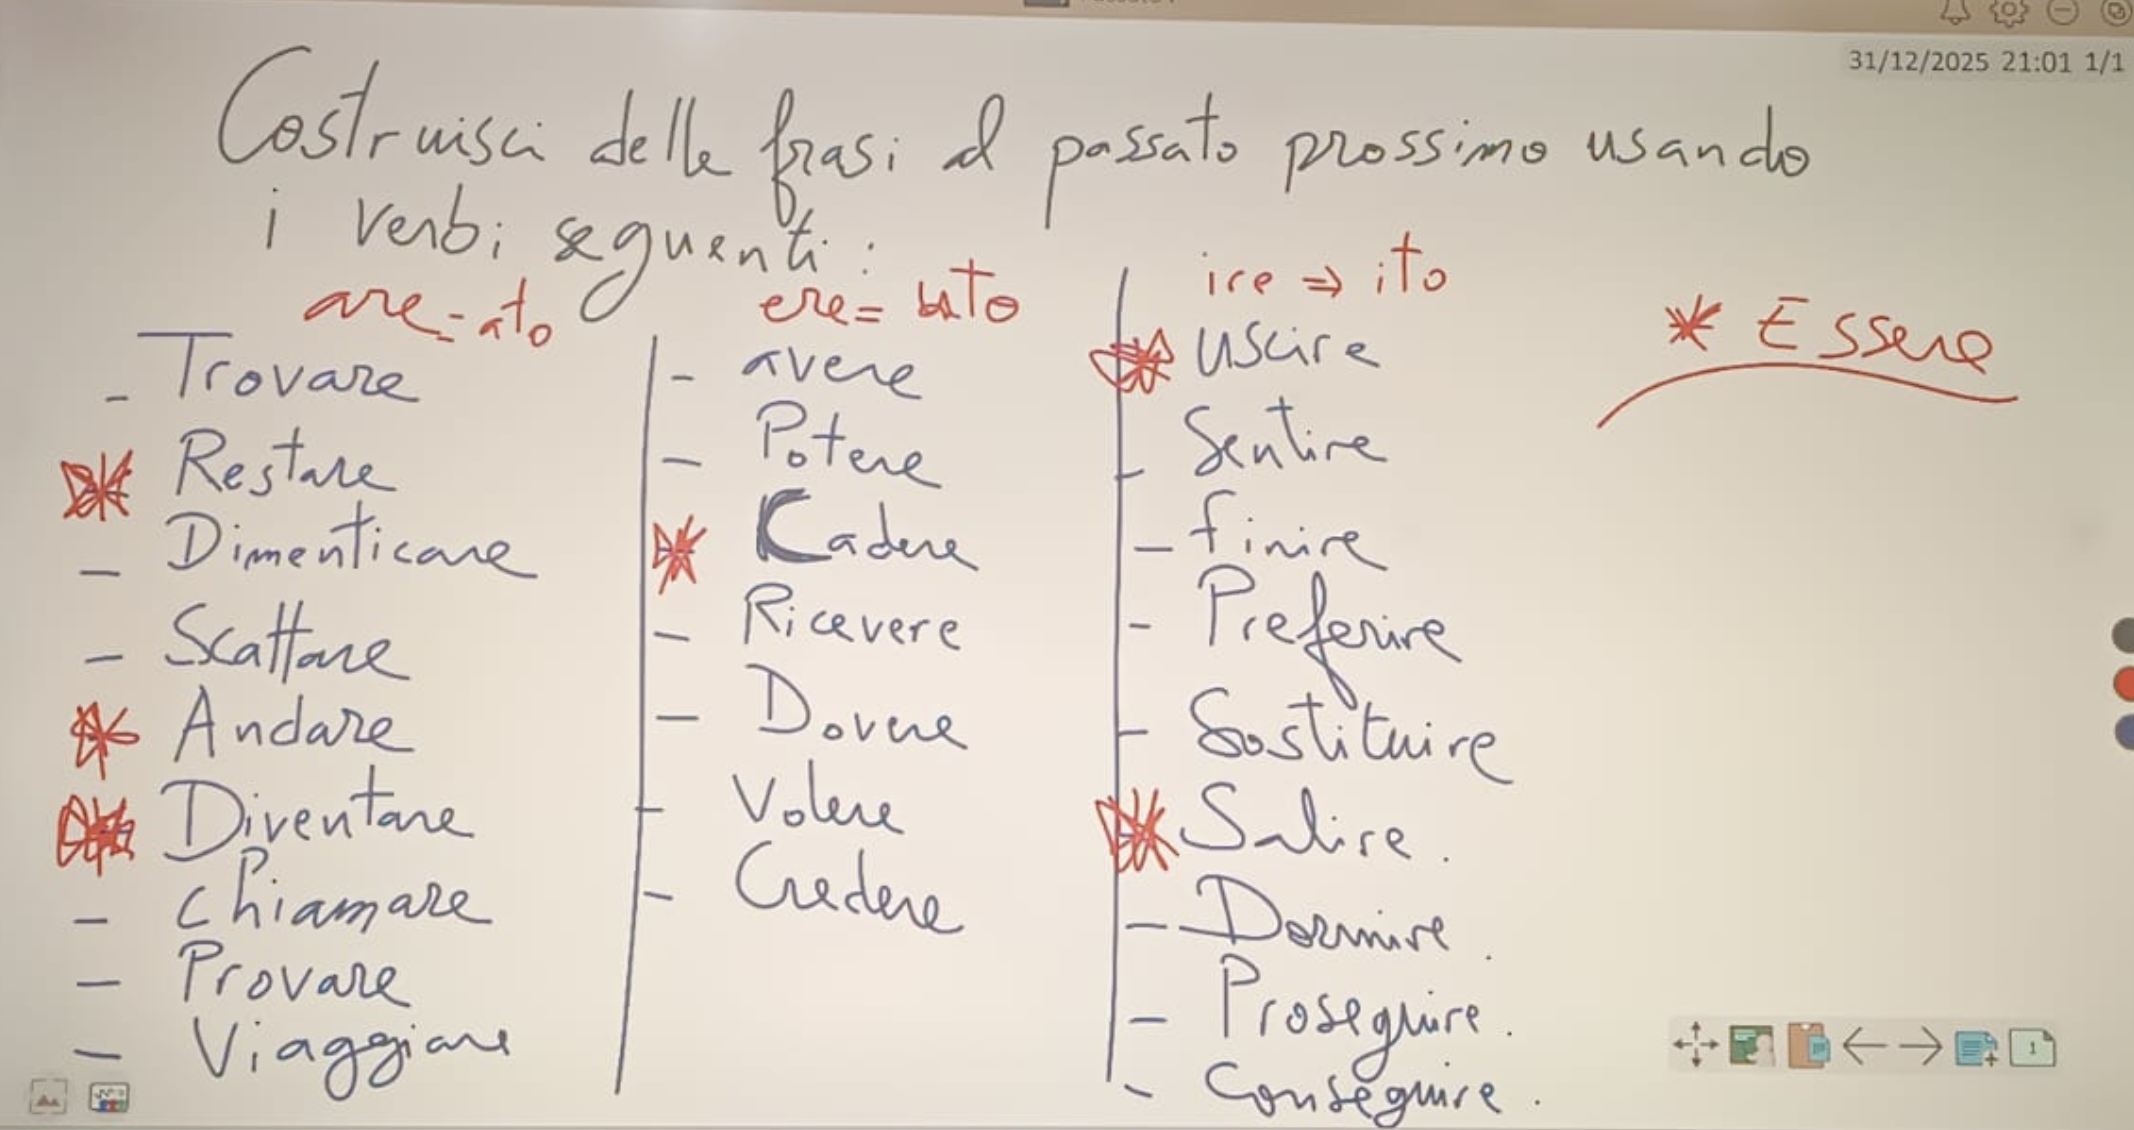 31/12/2025 21:01 1/1
Costruisci delle frasi al passato prossimo usando
i verbi seguenti:
are = ato
- Trovare
* Restare
- Dimenticare
- Scattare
* Andare
* Diventare
- Chiamare
- Provare
- Viaggiare
ere = uto
- avere
- Potere
* Cadere
- Ricevere
- Dovere
- Volere
- Credere
ire ⇒ ito
* uscire
- Sentire
- finire
- Preferire
- Sostituire
* Salire.
- Dormire.
- Proseguire.
- Conseguire.
* Essere
1